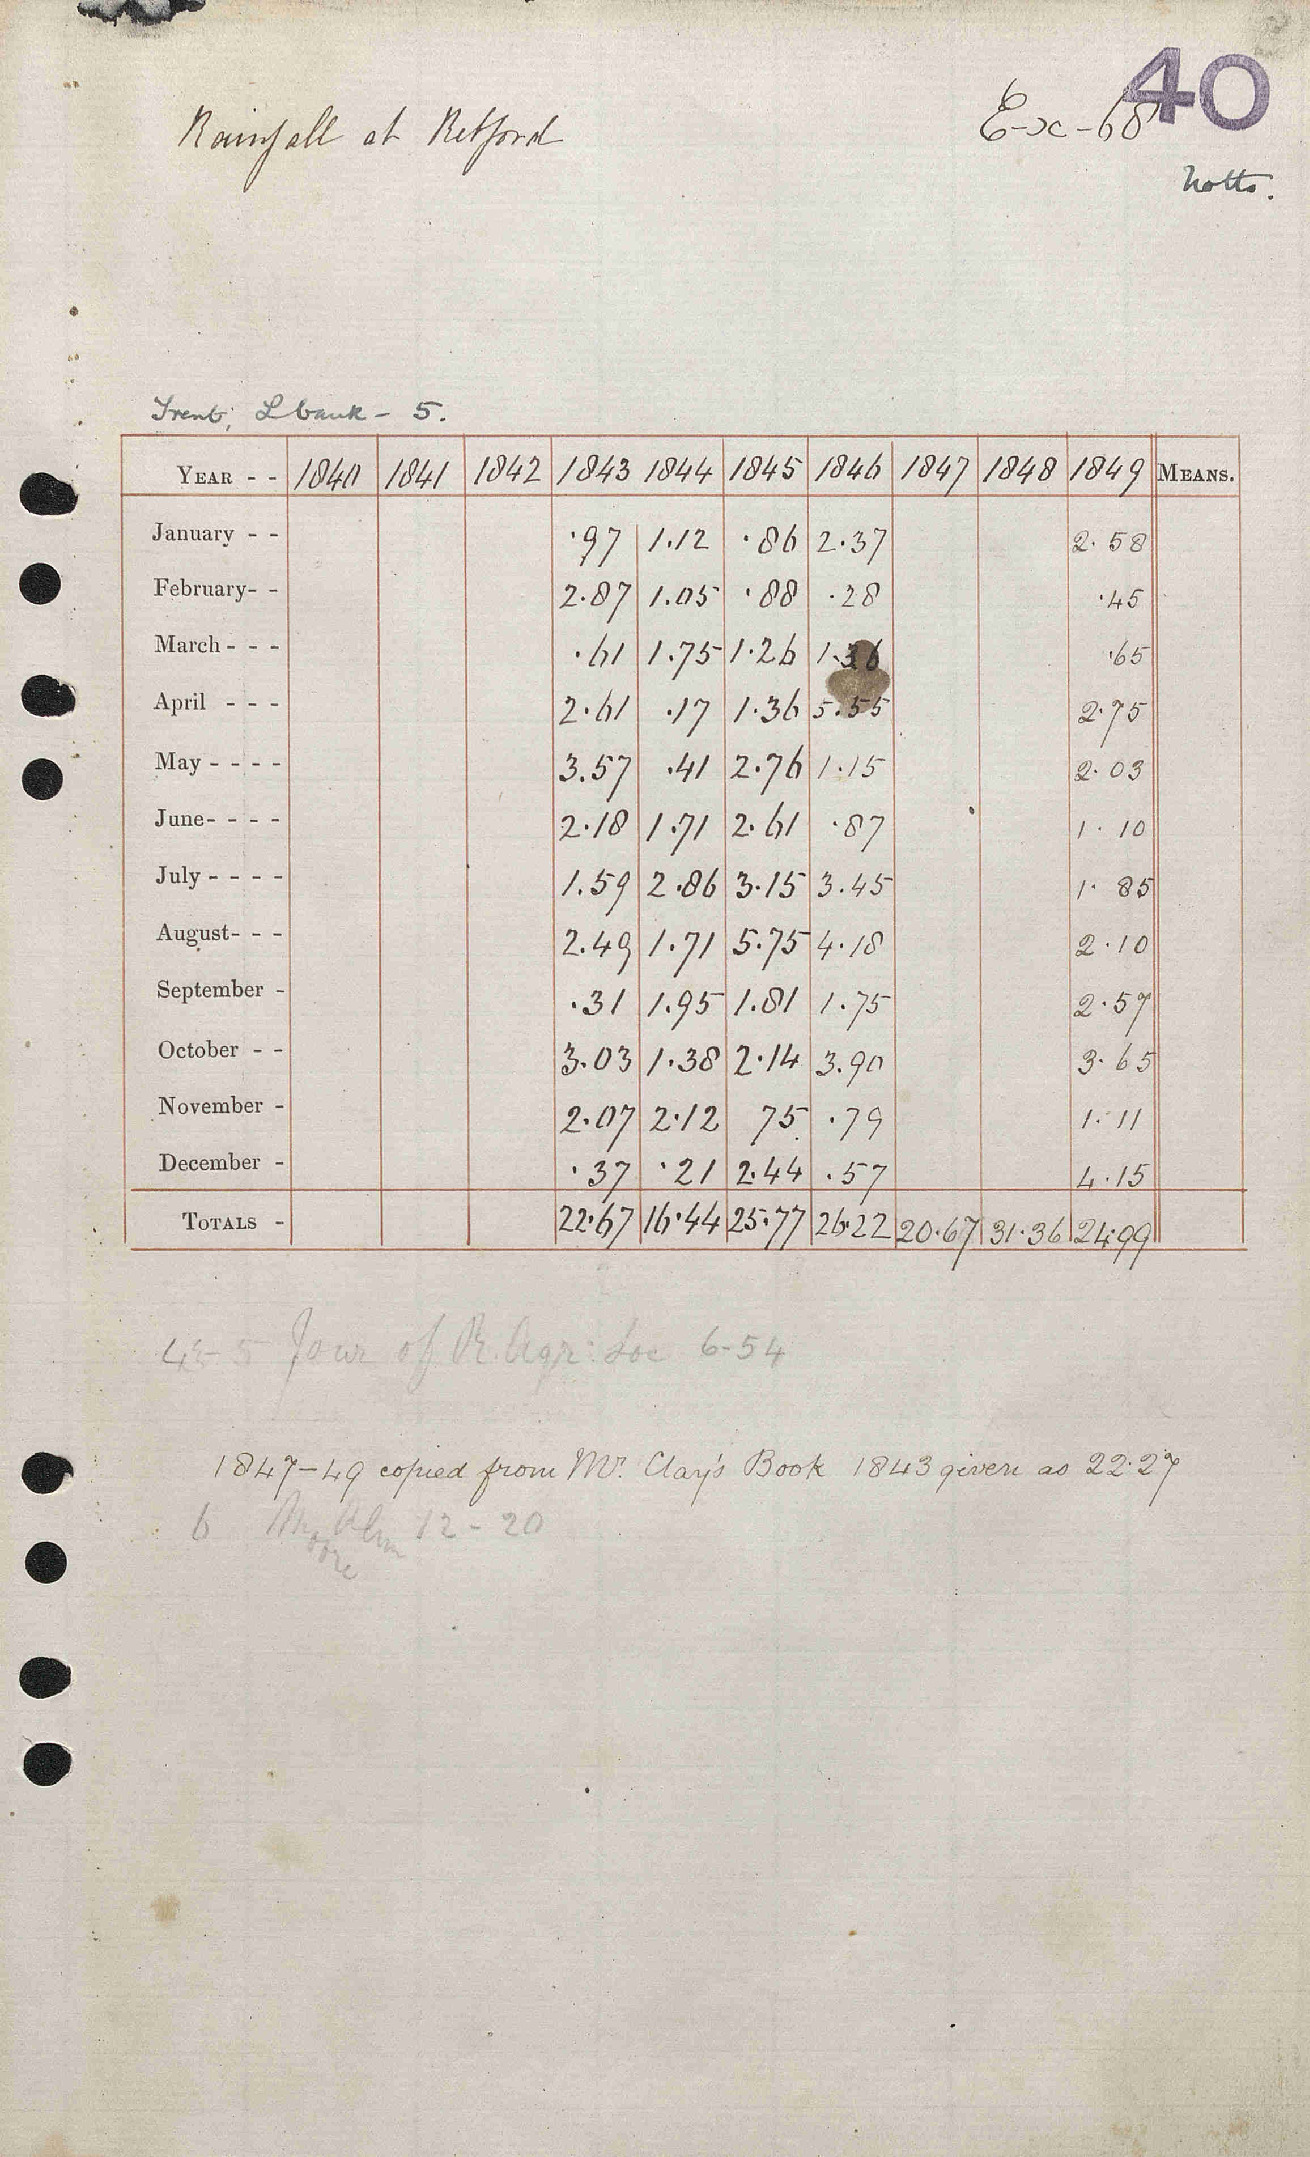 40
Rainfall at Retford
Ex-68
Notts.
Trent, L bank - 5.
YEAR - - 1840 1841 1842 1843 1844 1845 1846 1847 1848 1849 MEANS.
January - - ·97 1.12 ·86 2.37 2.58
February- - 2.87 1.05 ·88 ·28 ·45
March - - - ·61 1.75 1.26 1.36 ·65
April - - - 2.61 .17 1.36 5.55 2.75
May - - - - 3.57 .41 2.76 1.15 2.03
June- - - - 2.18 1.71 2.61 ·87 1.10
July - - - - 1.59 2.86 3.15 3.45 1.85
August- - - 2.49 1.71 5.75 4.18 2.10
September - .31 1.95 1.81 1.75 2.57
October - - 3.03 1.38 2.14 3.90 3.65
November - 2.07 2.12 75 .79 1.11
December - ·37 ·21 2.44 .57 4.15
TOTALS - 22.67 16.44 25.77 26.22 20.67 31.36 24.99
Jour of R. Agr: Soc 6-54
1847-49 copied from Mr. Clay's Book 1843 given as 22.27
6 Moore 12-20